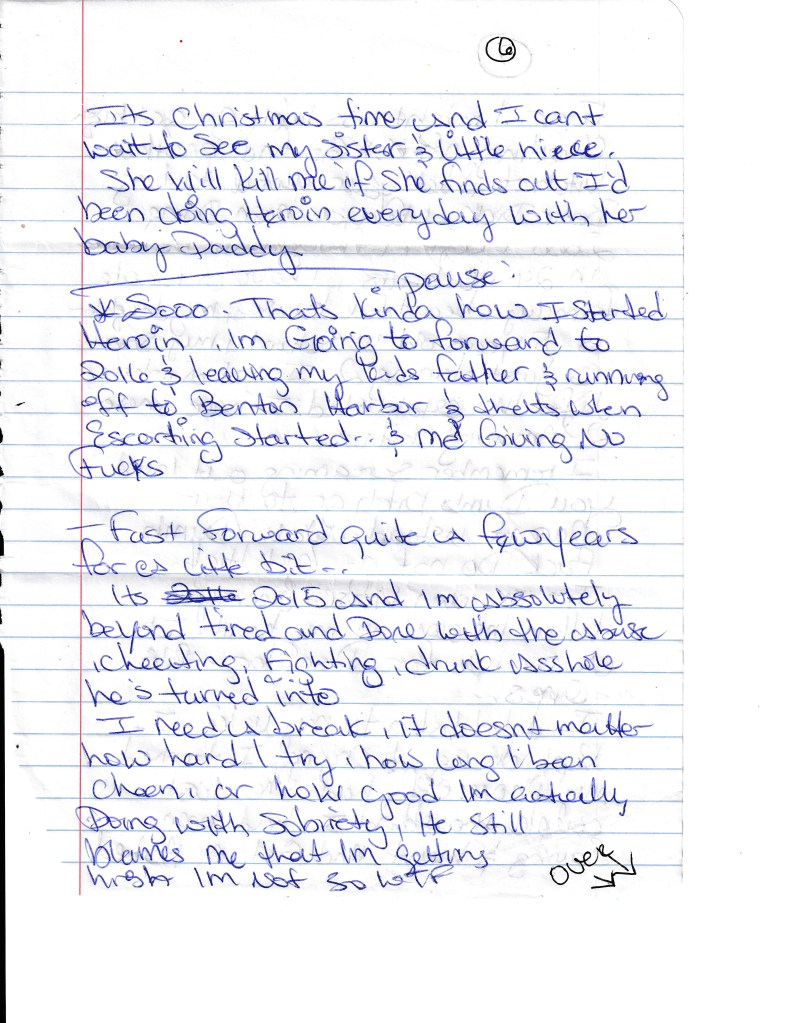 6
Its Christmas time and I cant
wait to See my sister & little niece.
She will kill me if She finds out I'd
been doing Heroin everyday with her
baby Daddy
pause:
* Sooo. Thats kinda how I Started
Heroin. Im Going to forward to
2016 & leaving my kids father & running
off to Benton Harbor & thatts when
Escorting Started... & me Giving No
Fucks
- Fast forward quite a few years
for a little bit...
Its 2015 and Im absolutely
beyond tired and Done with the abuse
, cheating, Fighting, drunk assshole
he's turned into
I need a break, it doesnt matter
how hard I try, how long I been
clean, or how good Im actually
Doing with Sobriety, He Still
blames me that Im getting
high Im Not so WTF
over